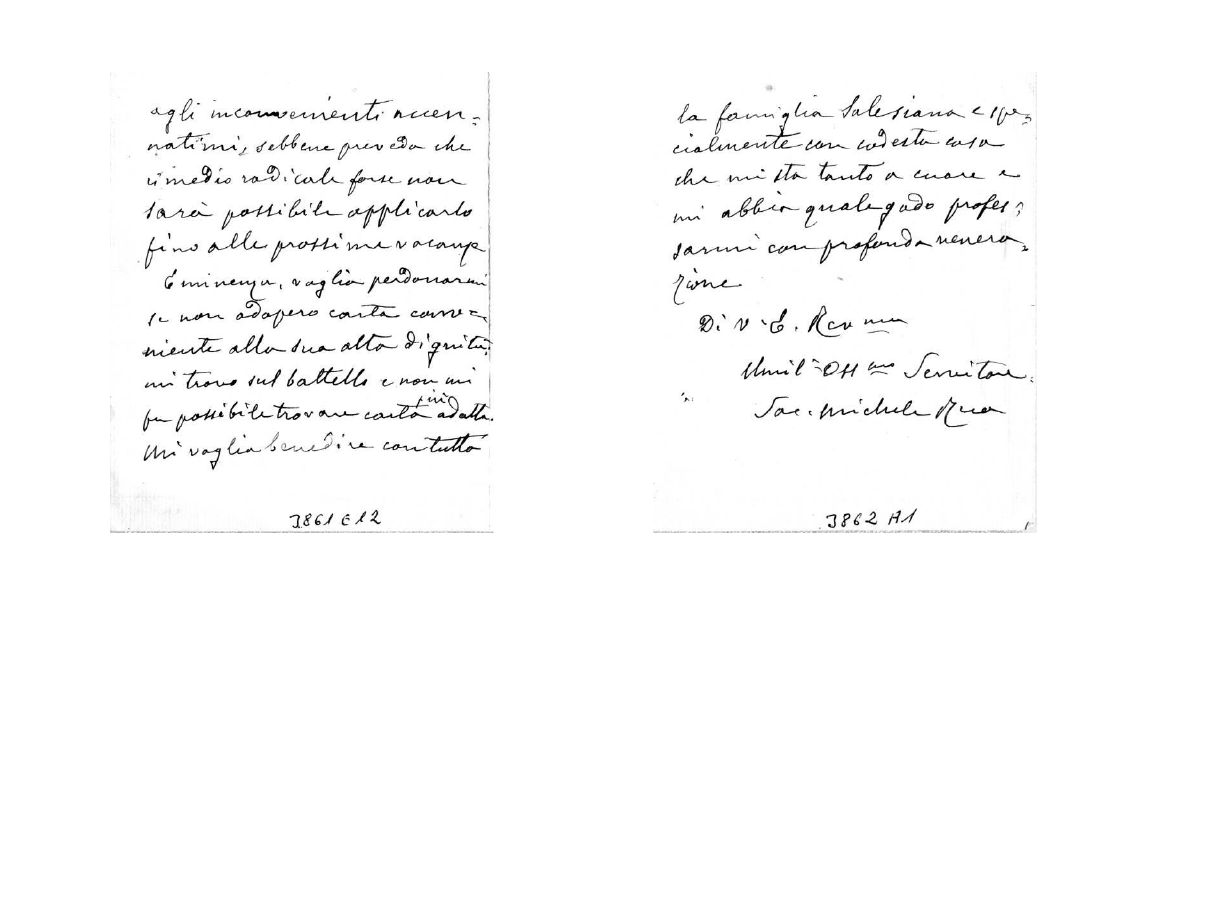 agli inconvenienti accen=
natimi, sebbene preveda che
rimedio radicale forse non
sarà possibile applicarlo
fino alle prossime vacanze
Eminenza, voglia perdonarmi
se non adopero carta conve=
niente alla sua alta dignità;
mi trovo sul battello e non mi
fu possibile trovare carta più adatta.
Mi voglia benedire con tutta
3861 E12
la famiglia Salesiana e spe=
cialmente con codesta casa
che mi sta tanto a cuore e
mi abbia quale godo profes=
sarmi con profonda venera=
zione
Di V. E. Rev.ma
Umil. Obb.mo Servitore
Sac. Michele Rua
3862 A1